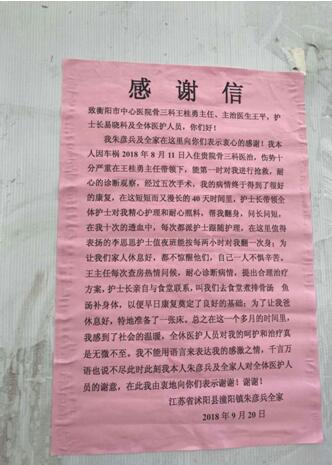 感谢信
致衡阳市中心医院骨三科王桂勇主任、主治医生王平，护
士长易晓科及全体医护人员，你们好！
我朱彦兵及全家在这里向你们表示衷心的感谢！我本
人因车祸2018年8月11日入住贵院骨三科医治，伤势十
分严重在王桂勇主任带领下，能第一时对我进行抢救，耐
心的诊断观察，经过五次手术，我的病情终于得到了很好
的康复，在这短短而又漫长的40天时间里，护士长带领全
体护士对我精心护理和耐心照料，帮我翻身，问长问短，
在我十次的透血中，每次都派护士跟随护理，在这里值得
表扬的李思思护士值夜班能按每两小时对我翻一次身；为
让我们家人休息好，都不惊醒他们，自己一人不惧辛苦。
王主任每次查房热情问候，耐心诊断病情，提出合理治疗
方案，护士长亲自与食堂联系，叫我们去食堂煮排骨汤 鱼
汤补身体，以便早日康复奠定了良好的基础；为了让我爸
休息好，特地准备了一张床。总之在这一个多月的时间里，
我感到了社会的温暖，全体医护人员对我的呵护和治疗真
是无微不至。我不能用语言来表达我的感激之情，千言万
语也说不尽此时此刻我本人朱彦兵及全家人对全体医护人
员的谢意，在此我由衷地向你们表示谢谢！谢谢！
江苏省沭阳县潼阳镇朱彦兵全家
2018年9月20日